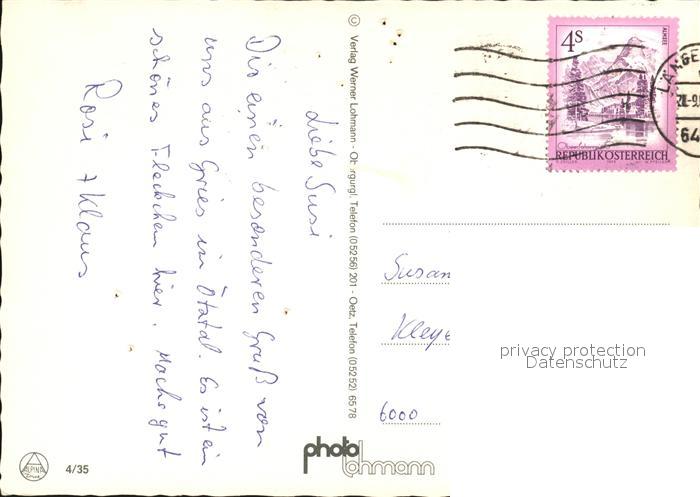 Liebe Susi
Dir einen besonderen Gruß von
uns aus Gries im Ötztal. Es ist ein
schönes Fleckchen hier. Machs gut
Rosi + Klaus
© Verlag Werner Lohmann - Obergurgl, Telefon (05256) 201 - Oetz, Telefon (05252) 6578
4S
ALMSEE
Oberösterreich
REPUBLIK ÖSTERREICH
LÄNGE
64
Susan
6000
privacy protection
Datenschutz
photo
lohmann
ALPINA
4/35